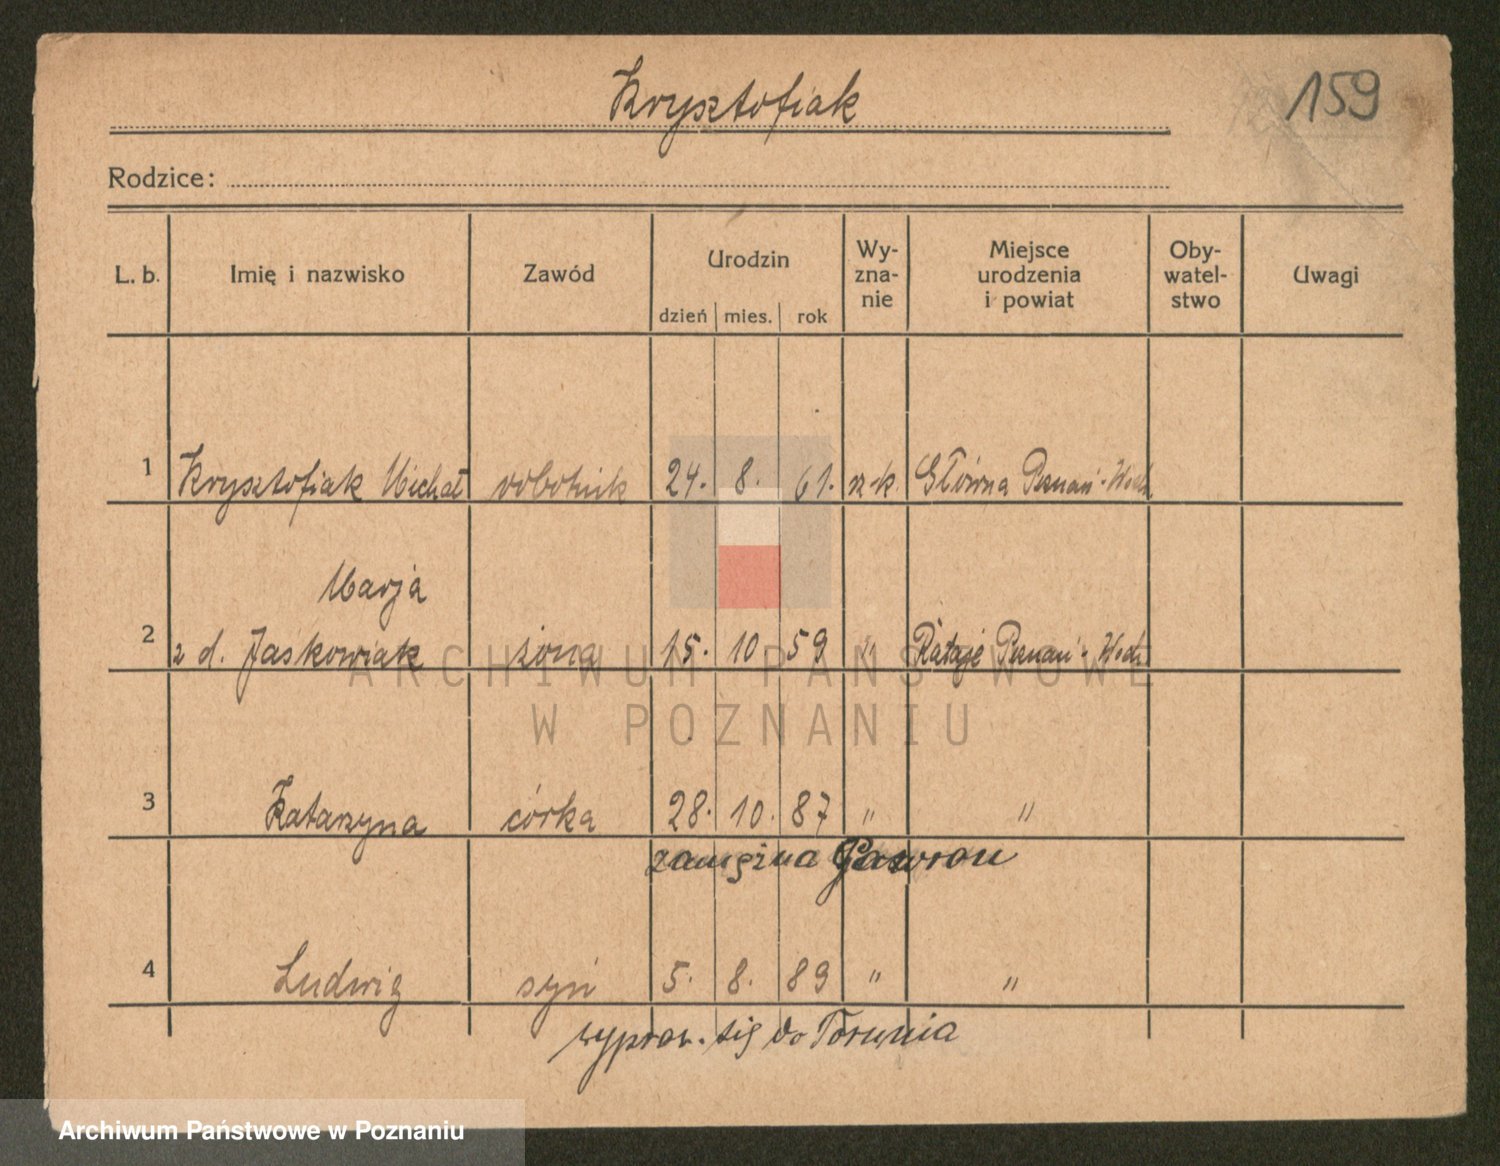 Krysztofiak
159
Rodzice:
L. b. Imię i nazwisko Zawód Urodzin dzień mies. rok Wy-zna-nie Miejsce urodzenia i powiat Oby-watel-stwo Uwagi
1 Krysztofiak Michał robotnik 24. 8. 61. rz-k. Główna Poznań-Wsch.
Marja
2 z d. Jaśkowiak żona 15. 10. 59 " Rataje Poznań-Wsch.
ARCHIWUM PAŃSTWOWE
W POZNANIU
3 Katarzyna córka 28. 10. 87 " "
zamężna Gawron
4 Ludwig syn 5. 8. 89 " "
wyprow. się do Torunia
Archiwum Państwowe w Poznaniu